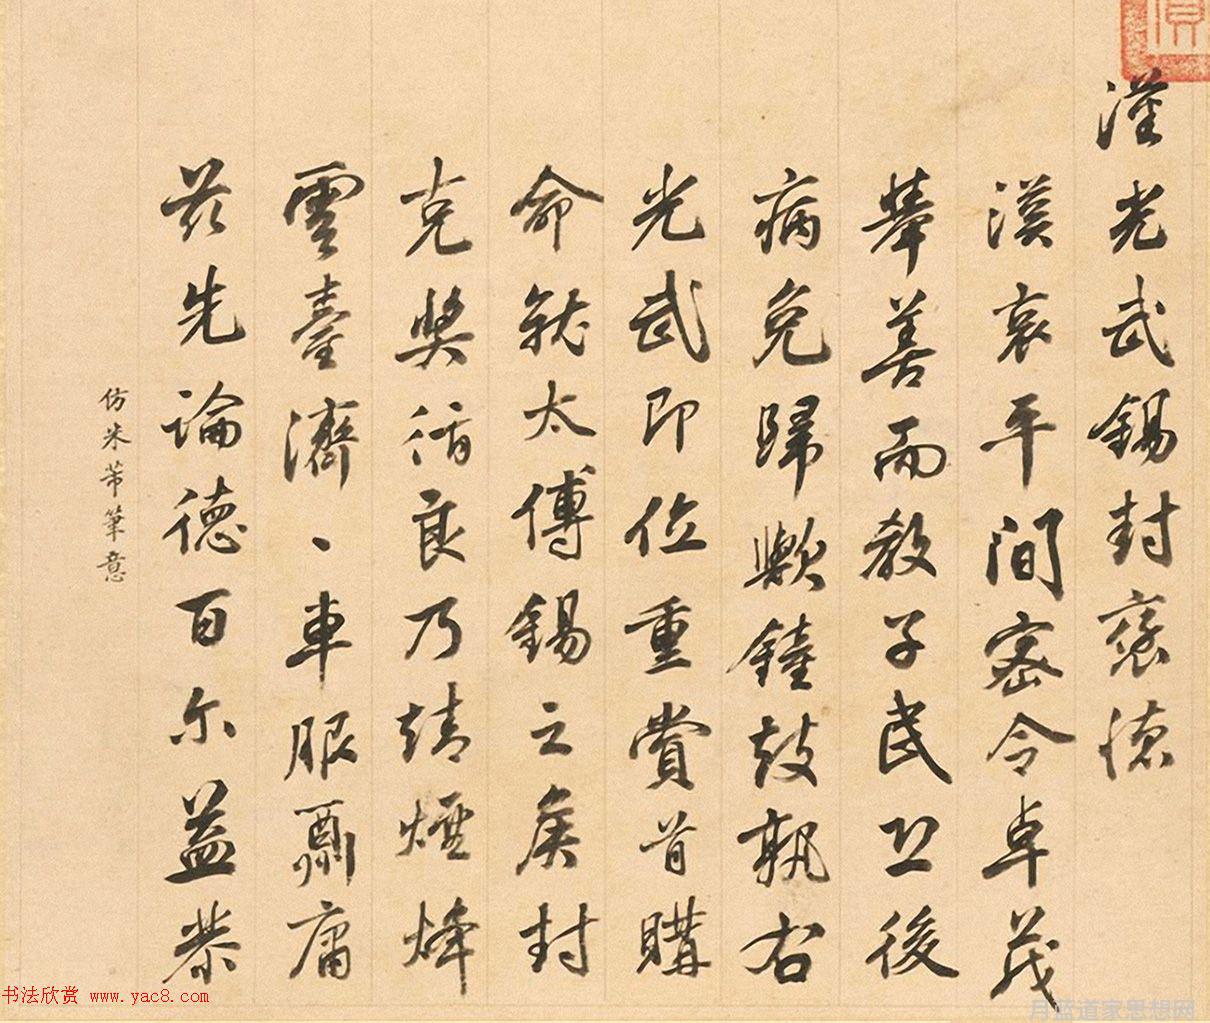 漢光武錫封褒德
漢哀平間密令卓茂
舉善而教子民後
病免歸歟鐘鼓孰右
光武即位重賞首購
命就太傅錫之矦封
克獎循良乃靖煙烽
雲臺濟、車服酬庸
茲先論德百尔益恭
仿米芾筆意
书法欣赏 www.yac8.com
月蓝道家思想网